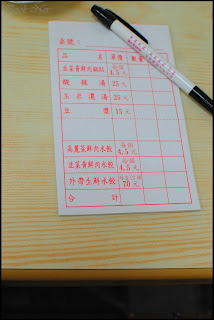 桌號：
品名 單價 數量
韭菜黃鮮肉鍋貼 每個 4.5元
酸辣湯 25元
玉米濃湯 25元
豆漿 15元
高麗菜鮮肉水餃 每個 4.5元
韭菜黃鮮肉水餃 每個 4.5元
外帶生鮮水餃 70元
合計